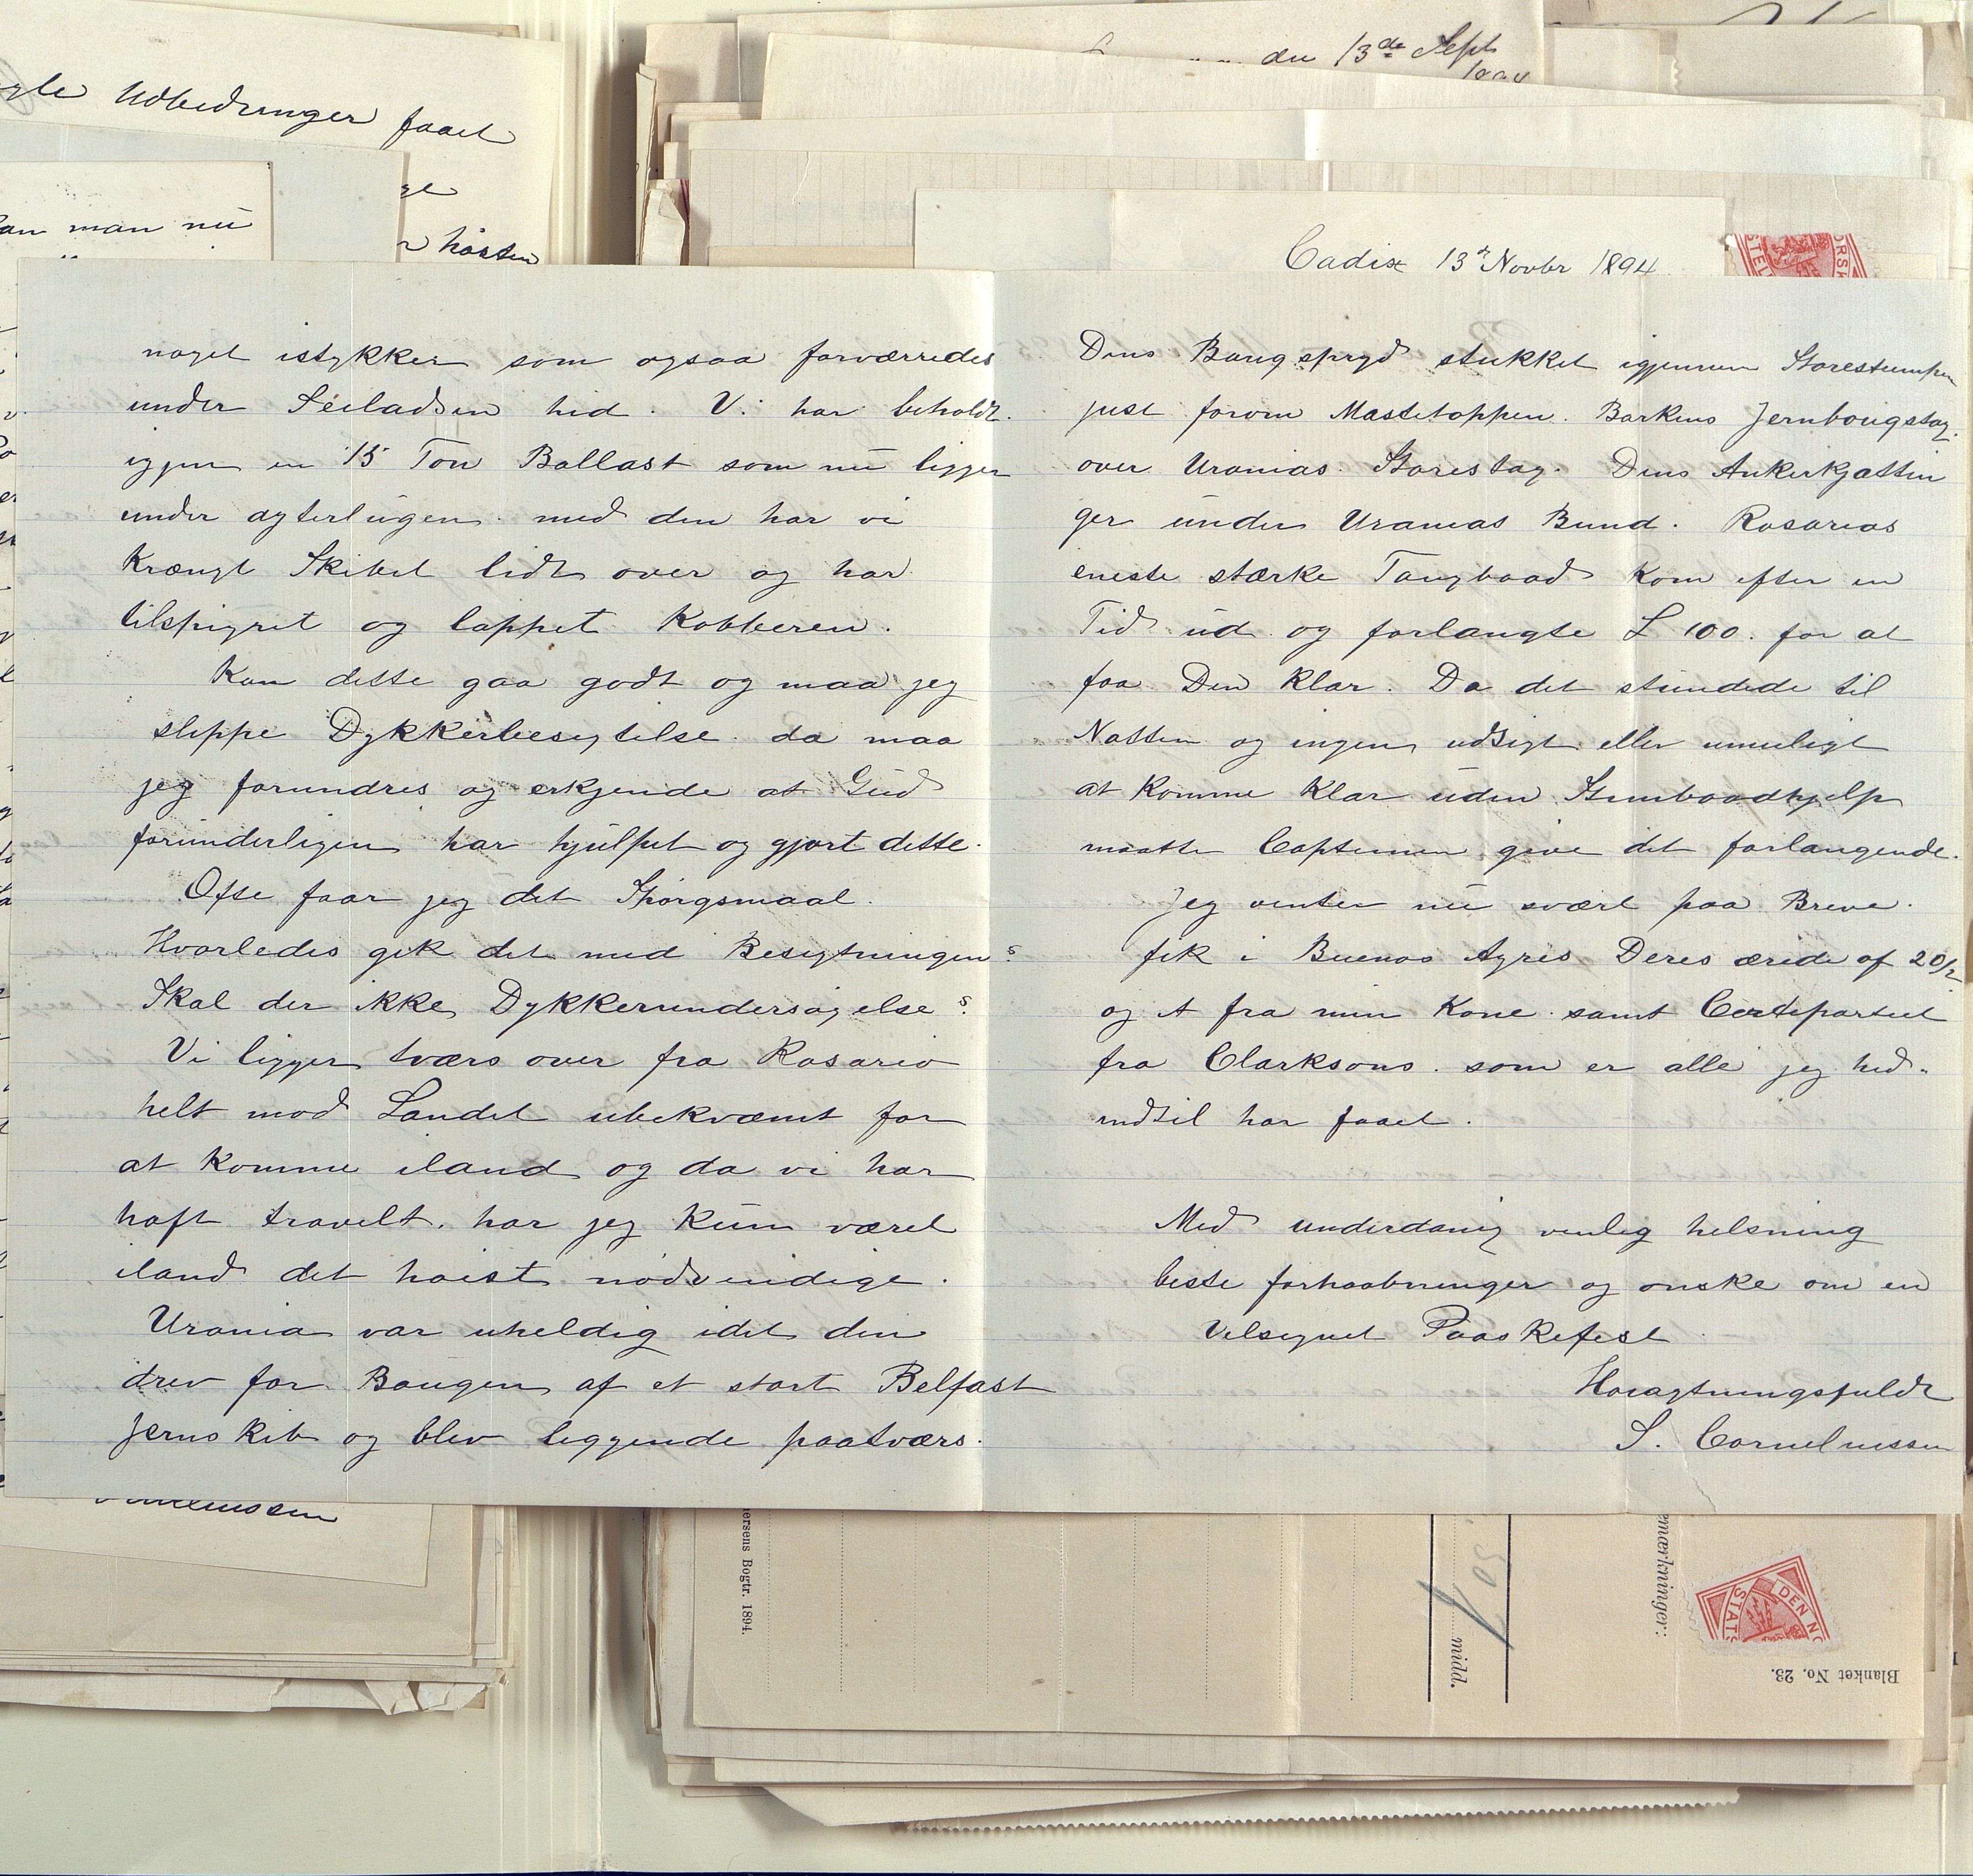 den 13de Sept
Udbedringer faaet
man nu
høsten
Cadix 13de Novbr 1894
noget istykker som ogsaa forværredes
under Seiladsen hid. Vi har beholdt
igjen en 15 Ton Ballast som nu ligger
under agterlugen. med den har vi
Krængt Skibet lidt over og har
tilspigret og lappet Kobberen.
Kan dette gaa godt og maa jeg
slippe Dykkerbesigtelse. da maa
jeg forundres og erkjende at Gud
forunderligen har hjulpet og gjort dette.
Ofte faar jeg det Spörgsmaal.
Hvorledes gik det med Besigtningen?
Skal der ikke Dykkerundersøgelse?
Vi ligger tværs over fra Rosario
helt mod Landet ubekvæmt for
at Komme iland og da vi har
haft travelt. har jeg Kun været
iland det høist nødvendige.
Urania var uheldig idet den
drev for Bougen af et stort Belfast
Jernskib og blev liggende paatværs.
Dens Bougspryd stukket igjennem Storestumpen
just forom Mastetoppen. Barkens Jernbougstag
over Uranias Storestag. Dens Ankerkjættin
ger under Uranias Bund. Rosarios
eneste stærke Taugbaad Kom efter en
Tid ud og forlangte £ 100. for at
faa Den Klar. Da det stundede til
Natten og ingen udsigt eller umuligt
at Komme Klar uden Stimbaadhjelp
maatte Capteinen give det forlangende.
Jeg venter nu svært paa Breve.
fik i Buenos Ayres Deres ærede af 20/2
og et fra min Kone samt Certepartiet
fra Clarksons. som er alle jeg hid-
indtil har faaet.
Med underdanig venlig helsning
beste forhaabninger og ønske om en
Velsignet Paaskefest
Høiagtningsfuldt
S. Corneliussen
ersens Bogtr. 1894.
midd.
emærkninger:
Blanket No. 23.
STATS
DEN NO